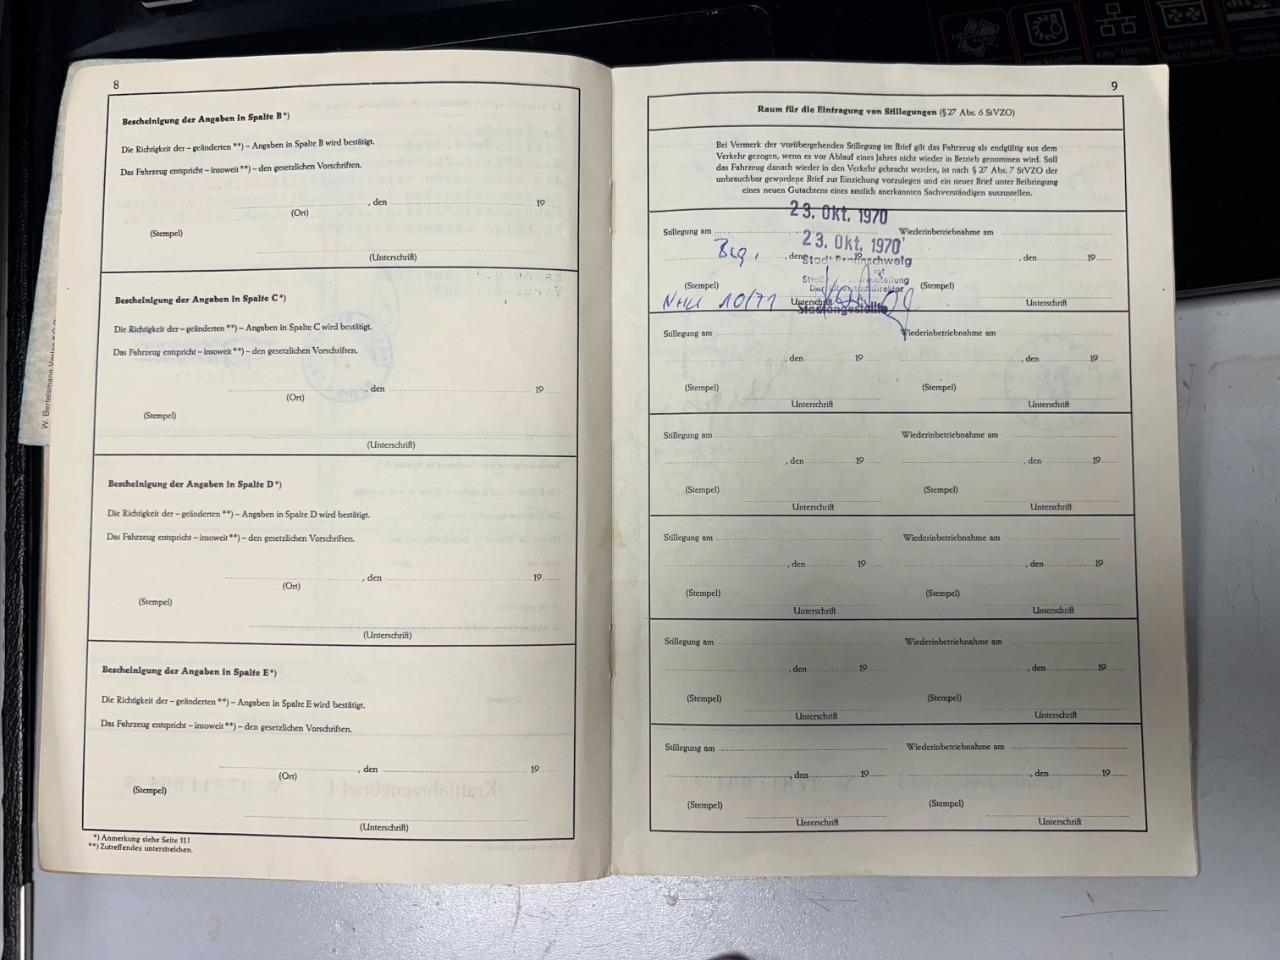 8
Bescheinigung der Angaben in Spalte B*)
Die Richtigkeit der – geänderten **) – Angaben in Spalte B wird bestätigt.
Das Fahrzeug entspricht – insoweit **) – den gesetzlichen Vorschriften.
, den 19
(Ort)
(Stempel)
(Unterschrift)
Bescheinigung der Angaben in Spalte C*)
Die Richtigkeit der – geänderten **) – Angaben in Spalte C wird bestätigt.
Das Fahrzeug entspricht – insoweit **) – den gesetzlichen Vorschriften.
, den 19
(Ort)
(Stempel)
(Unterschrift)
Bescheinigung der Angaben in Spalte D*)
Die Richtigkeit der – geänderten **) – Angaben in Spalte D wird bestätigt.
Das Fahrzeug entspricht – insoweit **) – den gesetzlichen Vorschriften.
, den 19
(Ort)
(Stempel)
(Unterschrift)
Bescheinigung der Angaben in Spalte E*)
Die Richtigkeit der – geänderten **) – Angaben in Spalte E wird bestätigt.
Das Fahrzeug entspricht – insoweit **) – den gesetzlichen Vorschriften.
, den 19
(Ort)
(Stempel)
(Unterschrift)
*) Anmerkung siehe Seite 11!
**) Zutreffendes unterstreichen.
W. Bertelsmann Verlag
9
Raum für die Eintragung von Stillegungen (§ 27 Abs. 6 StVZO)
Bei Vermerk der vorübergehenden Stillegung im Brief gilt das Fahrzeug als endgültig aus dem
Verkehr gezogen, wenn es vor Ablauf eines Jahres nicht wieder in Betrieb genommen wird. Soll
das Fahrzeug danach wieder in den Verkehr gebracht werden, ist nach § 27 Abs. 7 StVZO der
unbrauchbar gewordene Brief zur Einziehung vorzulegen und ein neuer Brief unter Beibringung
eines neuen Gutachtens eines amtlich anerkannten Sachverständigen auszustellen.
23. Okt. 1970
Stillegung am Wiederinbetriebnahme am
23. Okt. 1970
, den 19 , den 19
Stadt Braunschweig
(Stempel) (Stempel)
10/71
Unterschrift Unterschrift
Stadtangestellte
Stillegung am Wiederinbetriebnahme am
, den 19 , den 19
(Stempel) (Stempel)
Unterschrift Unterschrift
Stillegung am Wiederinbetriebnahme am
, den 19 , den 19
(Stempel) (Stempel)
Unterschrift Unterschrift
Stillegung am Wiederinbetriebnahme am
, den 19 , den 19
(Stempel) (Stempel)
Unterschrift Unterschrift
Stillegung am Wiederinbetriebnahme am
, den 19 , den 19
(Stempel) (Stempel)
Unterschrift Unterschrift
Stillegung am Wiederinbetriebnahme am
, den 19 , den 19
(Stempel) (Stempel)
Unterschrift Unterschrift